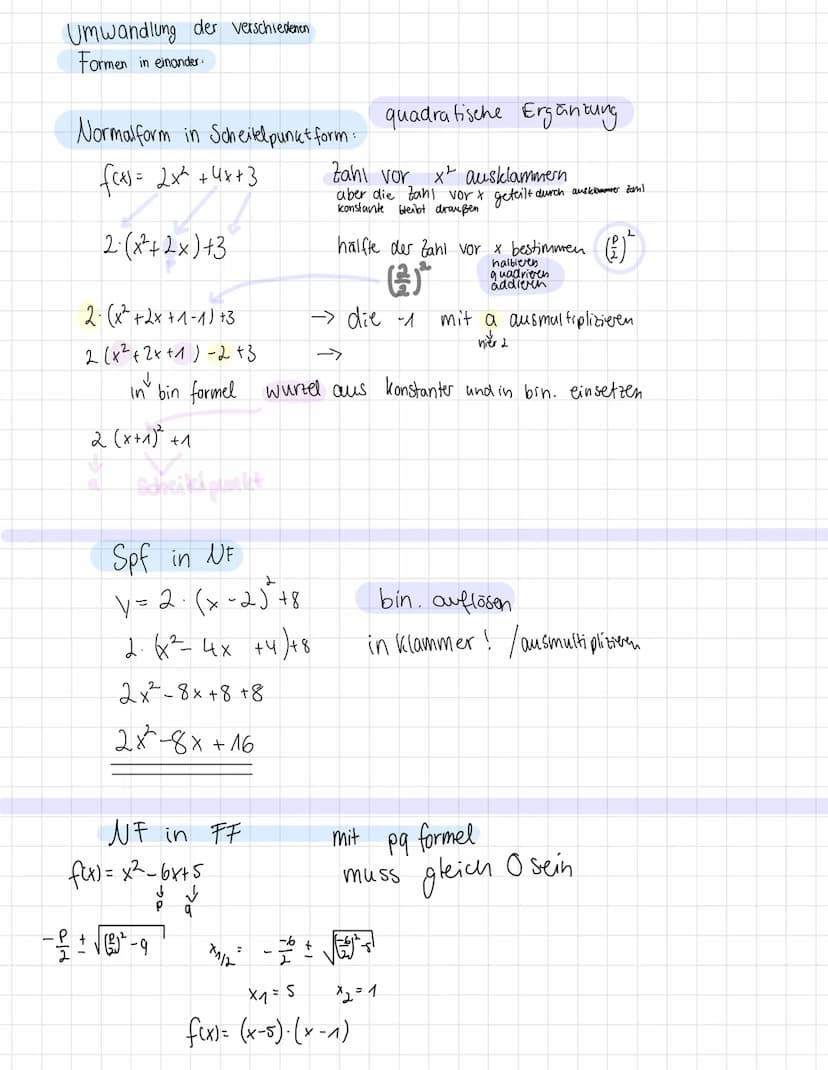 Umwandlung der verschiedenen
Formen in einander.
quadratische Ergänzung
Normalform in Scheitelpunktform:
f(x) = 2x² + 4x + 3
Zahl vor x² ausklammern
aber die Zahl vor x geteilt durch zahl
konstante bleibt draußen
2·(x² + 2x) + 3
p
hälfte der Zahl vor x bestimmen (p/2)²
(2/2)²
halbieren
quadrieren
addieren
2·(x² + 2x + 1 - 1) + 3 → die -1 mit a ausmultiplizieren
hier 2
2 (x² + 2x + 1) - 2 + 3 →
in bin formel wurzel aus konstanter und in bin. einsetzen
2 (x+1)² + 1
a Scheitelpunkt
Spf in NF
y = 2·(x - 2)² + 8 bin. auflösen
2·(x² - 4x + 4) + 8 in Klammer! / ausmultiplizieren
2x² - 8x + 8 + 8
2x² - 8x + 16
NF in FF mit pq formel
f(x) = x² - 6x + 5 muss gleich 0 sein
p q
-p/2 ± √((p/2)² - q) x1/2 = - -6/2 ± √((-6/2)² - 5)
x1 = 5 x2 = 1
f(x) = (x-5)·(x-1)